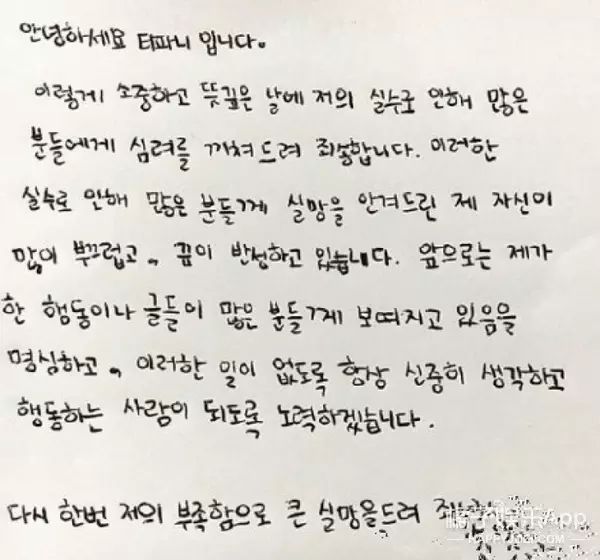 안녕하세요 티파니 입니다.
이렇게 소중하고 뜻깊은 날에 저의 실수로 인해 많은
분들에게 심려를 끼쳐드려 죄송합니다. 이러한
실수로 인해 많은 분들께 실망을 안겨드린 제 자신이
많이 부끄럽고, 깊이 반성하고 있습니다. 앞으로는 제가
한 행동이나 글들이 많은 분들께 보여지고 있음을
명심하고, 이러한 일이 없도록 항상 신중히 생각하고
행동하는 사람이 되도록 노력하겠습니다.
다시 한번 저의 부족함으로 큰 실망을드려
App